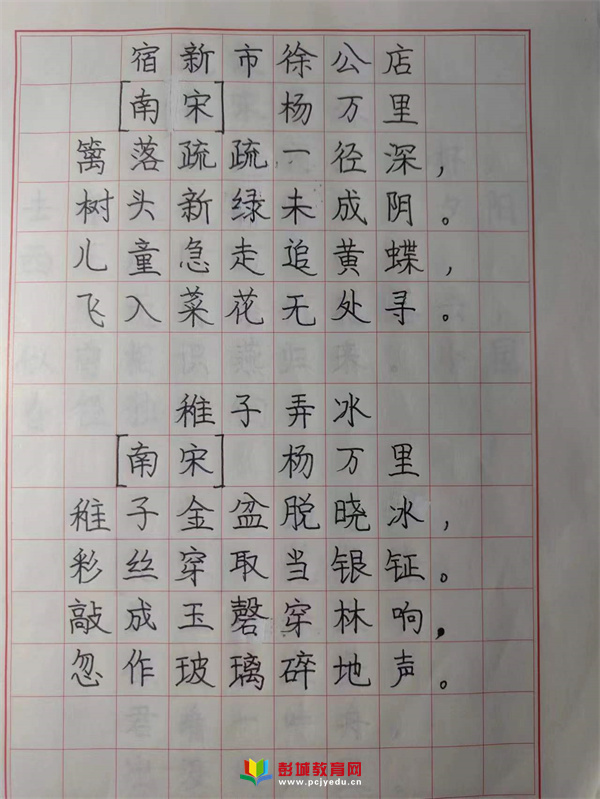 宿新市徐公店
[南宋] 杨万里
篱落疏疏一径深，
树头新绿未成阴。
儿童急走追黄蝶，
飞入菜花无处寻。
稚子弄冰
[南宋] 杨万里
稚子金盆脱晓冰，
彩丝穿取当银钲。
敲成玉磬穿林响，
忽作玻璃碎地声。
彭城教育网
www.pcjyedu.cn